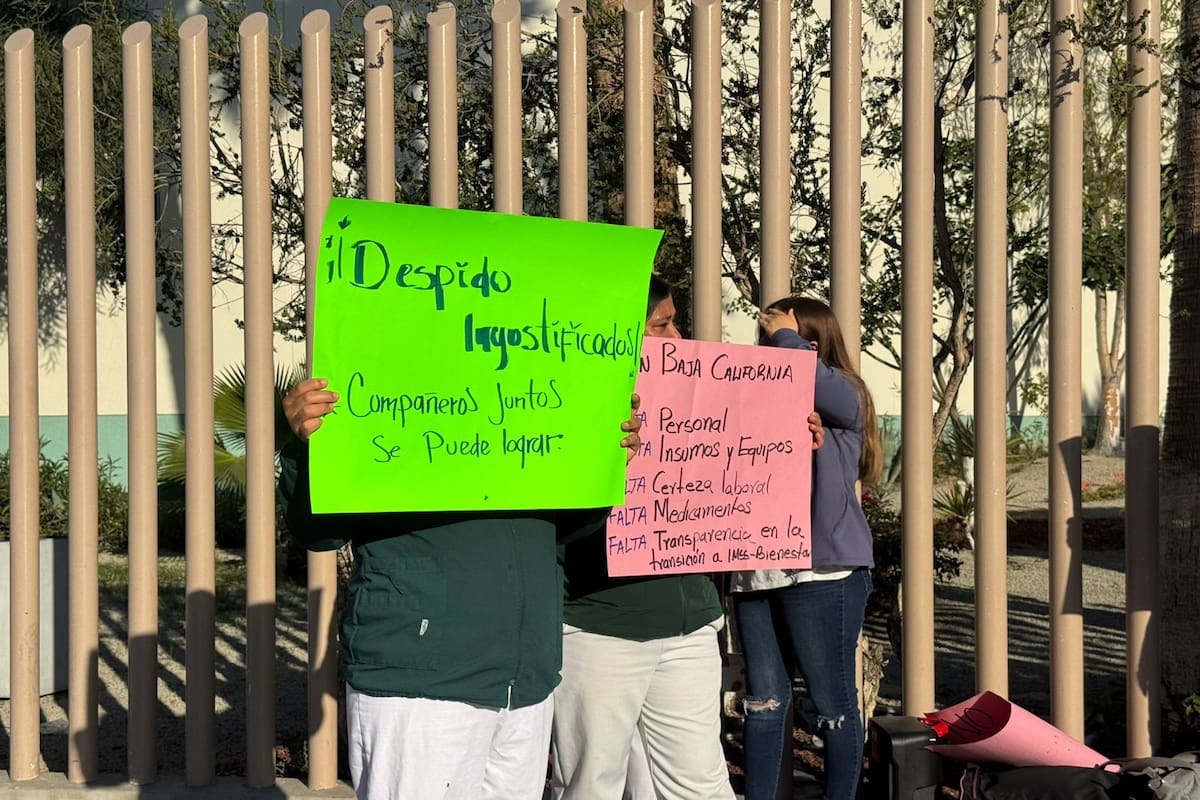 ¡¡Despido
Ingostificados!!
Compañeros Juntos
Se Puede lograr.
N BAJA CALIFORNIA
TA Personal
TA Insumos y Equipos
LTA Certeza laboral
FALTA Medicamentos
FALTA Transparencia en la
transición a IMSS-Bienestar
NO